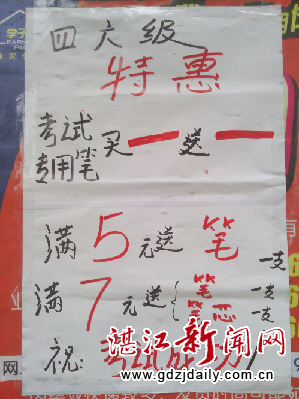 四六级
特惠
考试专用笔 买一送一
满5元送 笔 一支
满7元送 笔 一支
笔芯 一支
祝 考试成功
湛江新闻网
网.www.gdzjdaily.com.cn